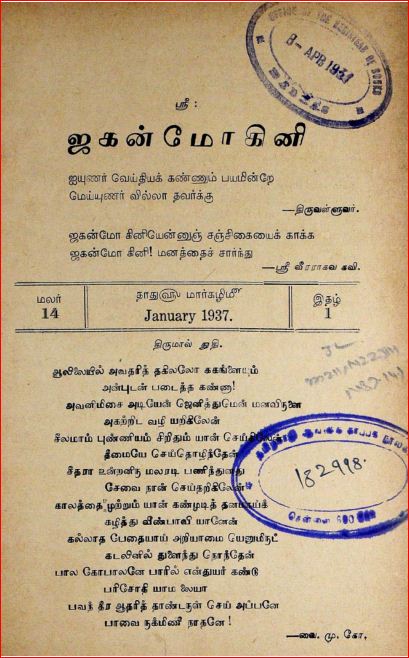 OFFICE OF THE REGISTRAR OF BOOKS
8- APR 1937
MADRAS
ஸ்ரீ :
ஜகன்மோகினி
ஐயுணர் வெய்தியக் கண்ணும் பயமின்றே
மெய்யுணர் வில்லா தவர்க்கு
—திருவள்ளுவர்.
ஜகன்மோ கினியேன்னுஞ் சஞ்சிகையைக் காக்க
ஜகன்மோ கினி! மனத்தைச் சார்ந்து
—ஸ்ரீ வீரராகவ கவி.
மலர்
14
தாது௵ மார்கழிமீ
January 1937.
இதழ்
1
திருமால் துதி.
ஆலிலையில் அவதரித் தகிலலோ ககங்களையும்
அன்புடன் படைத்த கண்ணா!
அவனிமிசை அடியேன் ஜெனித்துமென் மனவிருளை
அகற்றிட வழி யறிகிலேன்
சீலமாம் புண்ணியம் சிறிதும் யான் செய்கிலேன்
தீமையே செய்தொழிந்தேன்
சீதரா உன்றனிரு மலரடி பணிந்துனது
சேவை நான் செய்தறிகிலேன்
காலத்தைளற்றும் யான் கண்மூடித் தனமாய்க்
கழித்து வீண்பாவி யானேன்
கல்லாத பேதையாய் அறியாமை யெனுமிருட்
கடலினில் துளைந்து நொந்தேன்
பால கோபாலனே பாரில் என்துயர் கண்டு
பரிசோதி யாம லையா
பவந் தீர ஆதரித் தாண்டருள் செய் அப்பனே
பாவை ருக்மிணீ நாதனே!
—வை. மு. கோ.
182998.
சென்னை 600 008